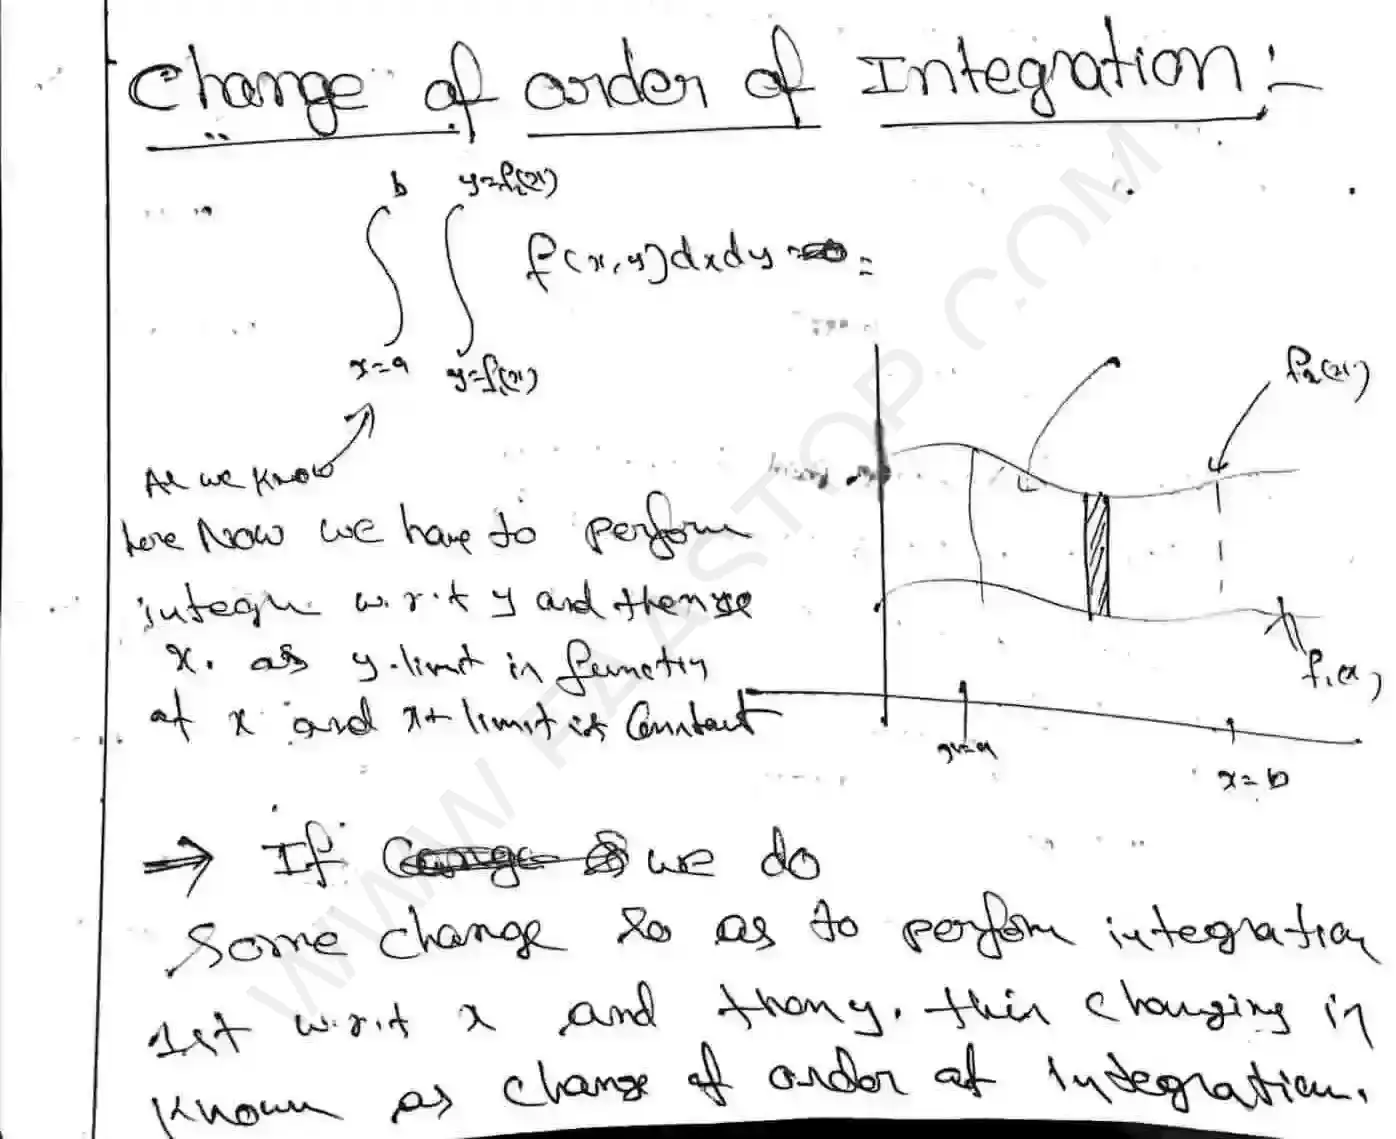 Change of order of Integration :-
b y=f₂(x)
∫ ∫ f(x,y)dxdy =
x=a y=f₁(x)
f₂(x)
As we know
here Now we have to perform
integr. w.r.t y and then
x. as y-limit is function
of x and x limit is Constant
f₁(x)
x=a
x=b
⇒ If we do
Some change so as to perform integration
1st w.r.t x and then y. this changing is
known as change of order of integration.
WWW.FAASTOP.COM